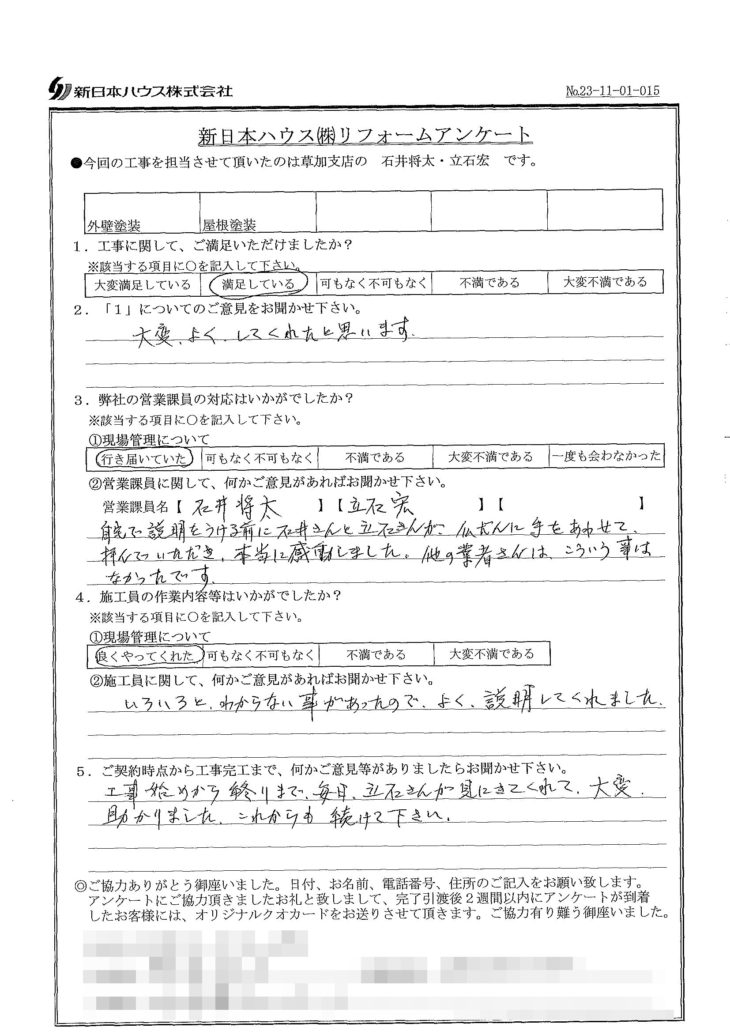 新日本ハウス株式会社
No.23-11-01-015
新日本ハウス㈱リフォームアンケート
●今回の工事を担当させて頂いたのは草加支店の 石井将太・立石宏 です。
外壁塗装 屋根塗装
1．工事に関して、ご満足いただけましたか？
※該当する項目に○を記入して下さい。
大変満足している 満足している 可もなく不可もなく 不満である 大変不満である
2．「1」についてのご意見をお聞かせ下さい。
大変、よく、してくれたと思います。
3．弊社の営業課員の対応はいかがでしたか？
※該当する項目に○を記入して下さい。
①現場管理について
行き届いていた 可もなく不可もなく 不満である 大変不満である 一度も会わなかった
②営業課員に関して、何かご意見があればお聞かせ下さい。
営業課員名【 石井将太 】【立石宏 】【 】
自宅で説明をうける前に石井さんと立石さんが、仏だんに手をあわせて、
拝んでいただき、本当に感動しました。他の業者さんは、こういう事は
なかったです。
4．施工員の作業内容等はいかがでしたか？
※該当する項目に○を記入して下さい。
①現場管理について
良くやってくれた 可もなく不可もなく 不満である 大変不満である
②施工員に関して、何かご意見があればお聞かせ下さい。
いろいろと、わからない事があったので、よく、説明してくれました。
5．ご契約時点から工事完工まで、何かご意見等がありましたらお聞かせ下さい。
工事始めから終りまで、毎日、立石さんが見にきてくれて、大変、
助かりました、これからも続けて下さい。
◎ご協力ありがとう御座いました。日付、お名前、電話番号、住所のご記入をお願い致します。
アンケートにご協力頂きましたお礼と致しまして、完了引渡後２週間以内にアンケートが到着
したお客様には、オリジナルクオカードをお送りさせて頂きます。ご協力有り難う御座いました。